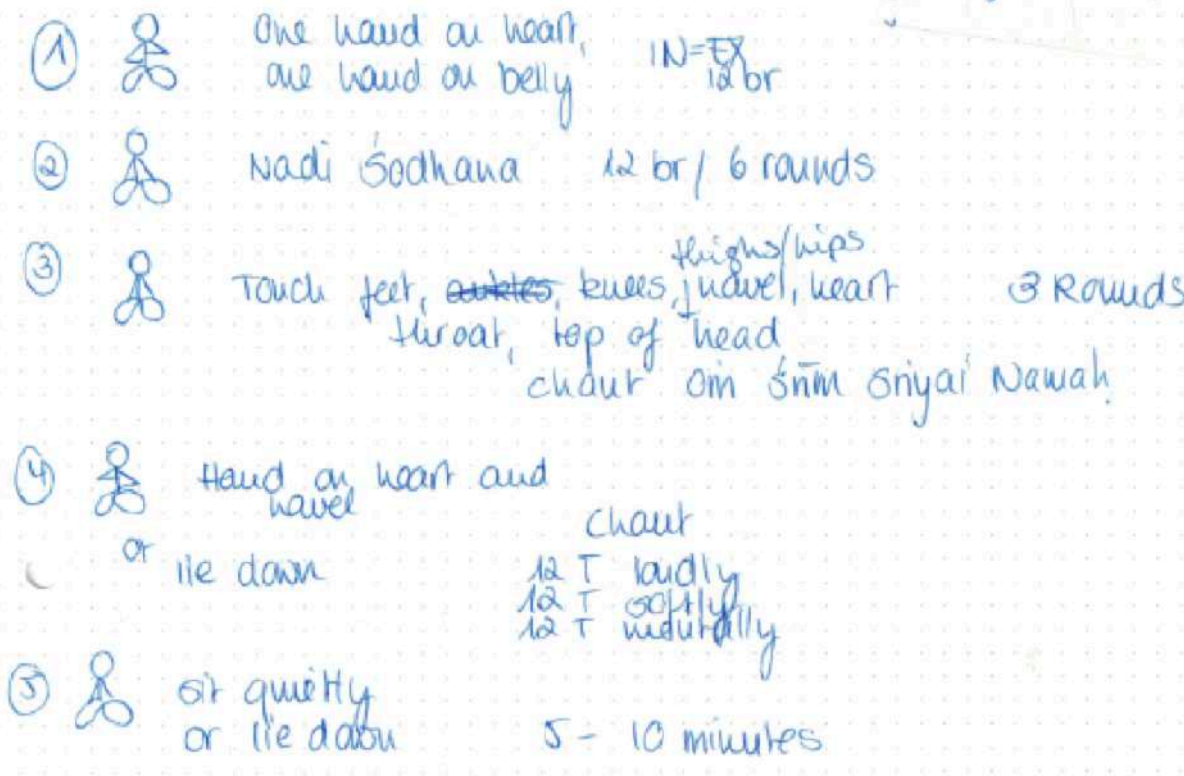 ① One hand on heart,
one hand on belly IN=EX
12 br
② Nadi Śodhana 12 br / 6 rounds
③ thighs/hips
Touch feet, ankles, knees, navel, heart 3 Rounds
throat, top of head
chant Om Śrīm Śriyai Namaḥ
④ Hand on heart and
navel
or lie down
Chant
12 T loudly
12 T softly
12 T mentally
⑤ sit quietly
or lie down 5 - 10 minutes